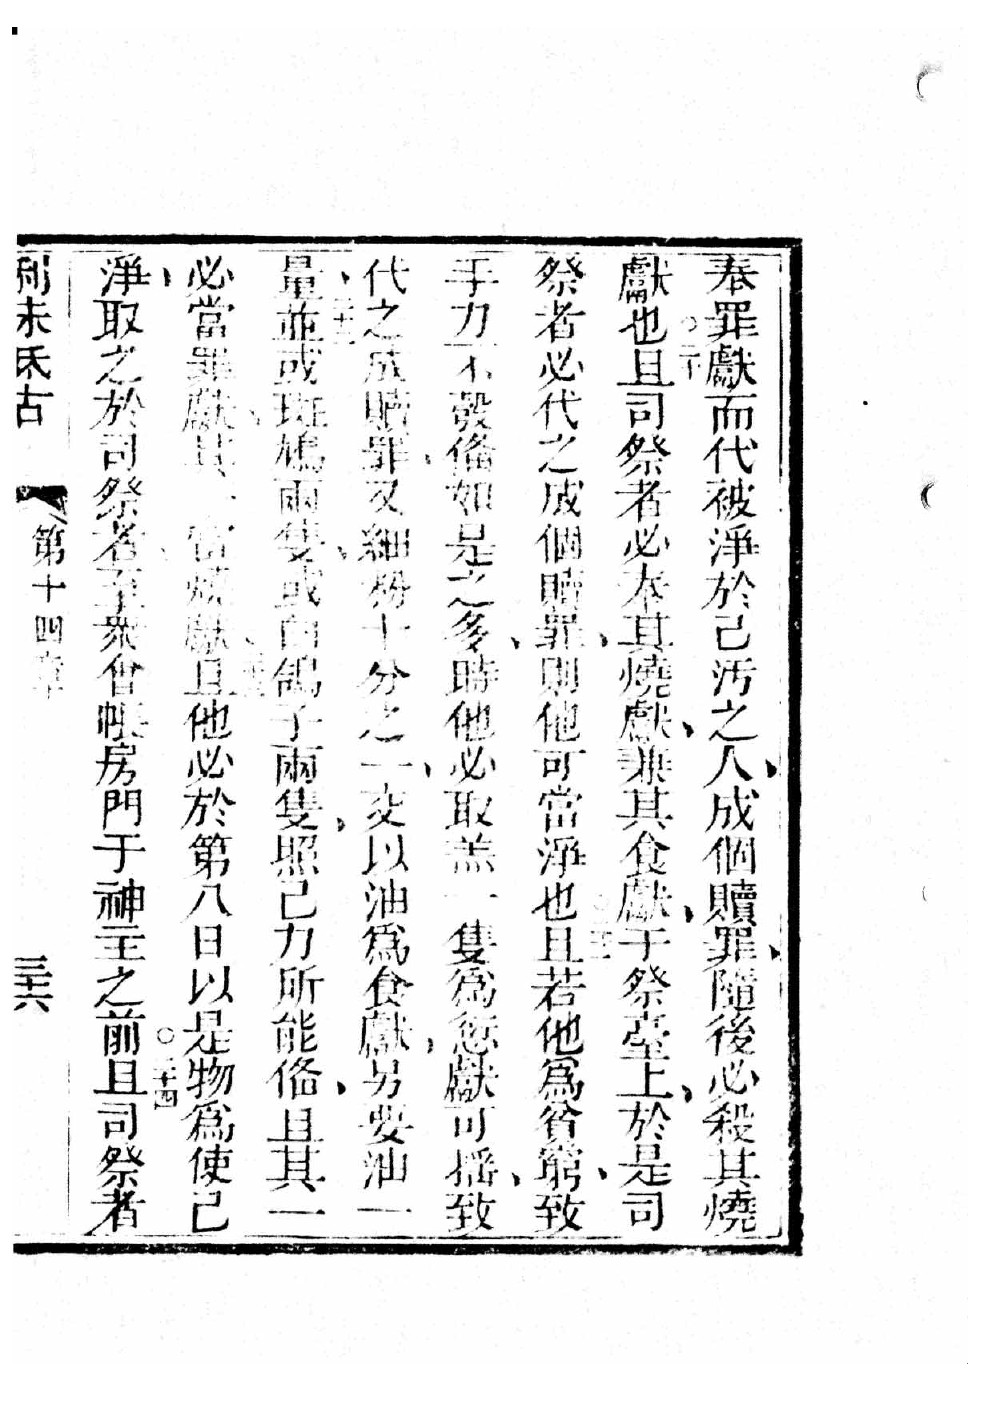 奉罪獻而代被淨於己汚之人、成個贖罪、隨後必殺其燒
獻也○二十且司祭者必奉其燒獻、兼其食獻、于祭臺上、於是司
祭者必代之成個贖罪、則他可當淨也○二十一且若他爲貧窮、致
手力不彀備如是之多、時他必取羔一隻爲愆獻可搖、致
代之成贖罪、又細麵十分之一、交以油爲食獻、另要油一
量、二十二並或斑鳩兩隻、或白鴿子兩隻、照己力所能備、且其一
必當罪獻、其一當燒獻、二十三且他必於第八日以是物爲使己
淨、取之於司祭者、至眾會帳房門于神主之前○二十四且司祭者
利未氏古
第十四章
三十六